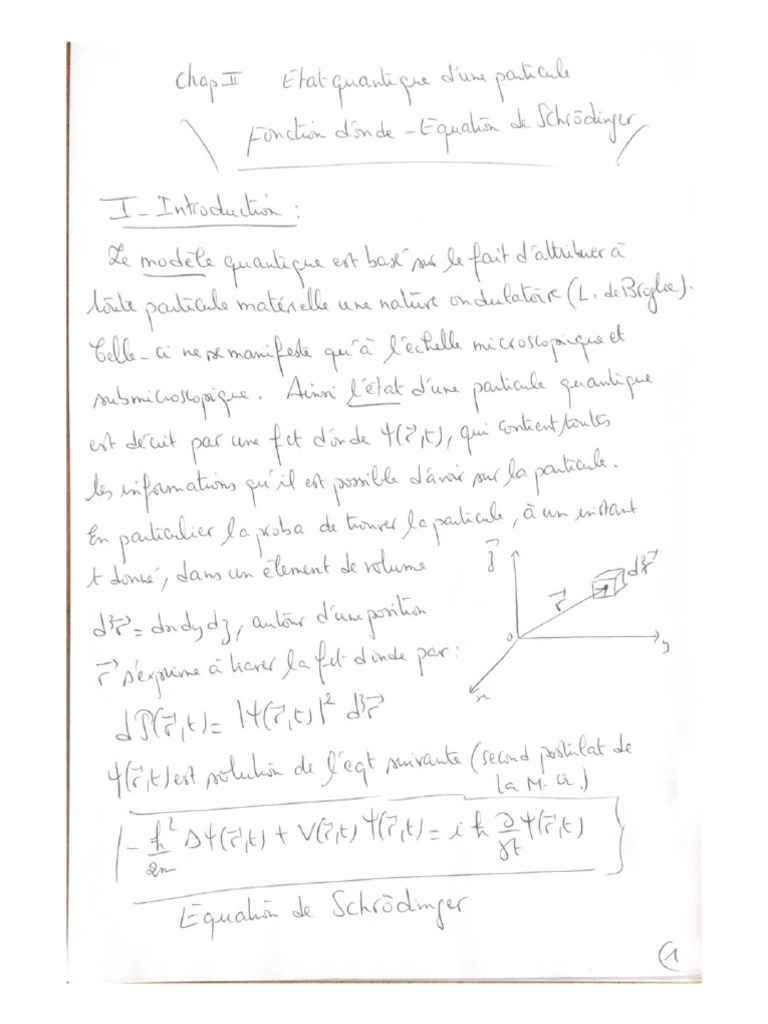 Chap II Etat quantique d'une particule
Fonction d'onde - Equation de Schrödinger
I - Introduction :
Le modèle quantique est basé sur le fait d'attribuer à
toute particule matérielle une nature ondulatoire (L. de Broglie).
Celle-ci ne se manifeste qu'à l'échelle microscopique et
submicroscopique. Ainsi l'état d'une particule quantique
est décrit par une fct d'onde Ψ(r⃗,t), qui contient toutes
les informations qu'il est possible d'avoir sur la particule.
En particulier la proba de trouver la particule, à un instant
t donné, dans un élement de volume
d³r⃗ = dx dy dz, autour d'une position
r⃗ s'exprime à travers la fct d'onde par :
z⃗
d³r⃗
r⃗
o
y
x
dP(r⃗,t) = |Ψ(r⃗,t)|² d³r⃗
Ψ(r⃗,t) est solution de l'eqt suivante (second postulat de
la M. Q.)
-ħ²/2m ΔΨ(r⃗,t) + V(r⃗,t) Ψ(r⃗,t) = i ħ ∂/∂t Ψ(r⃗,t)
Equation de Schrödinger
1